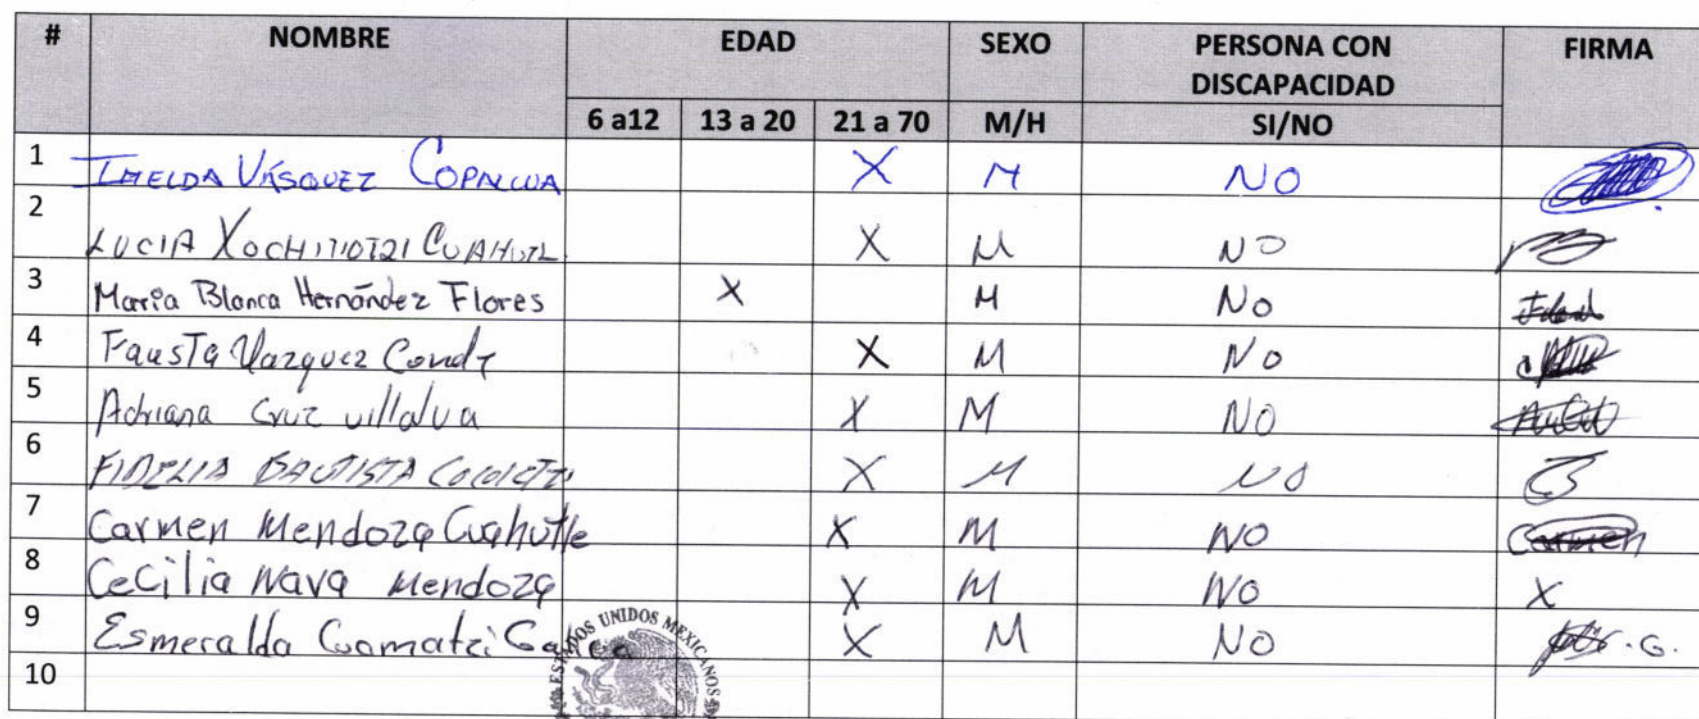 # NOMBRE EDAD SEXO PERSONA CON DISCAPACIDAD FIRMA
6 a12 13 a 20 21 a 70 M/H SI/NO
1 IMELDA VÁSQUEZ COPALCUA X M NO
2 LUCIA XOCHITIOTZI CUAHUTL X M NO
3 Maria Blanca Hernández Flores X M No
4 Fausta Vazquez Conde X M No
5 Adriana Cruz villalva X M NO
6 FIDELIA BAUTISTA COCOLETZI X M NO
7 Carmen Mendoza Cuahutle X M NO Carmen
8 Cecilia Nava Mendoza X M NO X
9 Esmeralda Cuamatzi X M NO
ESTADOS UNIDOS MEXICANOS
10